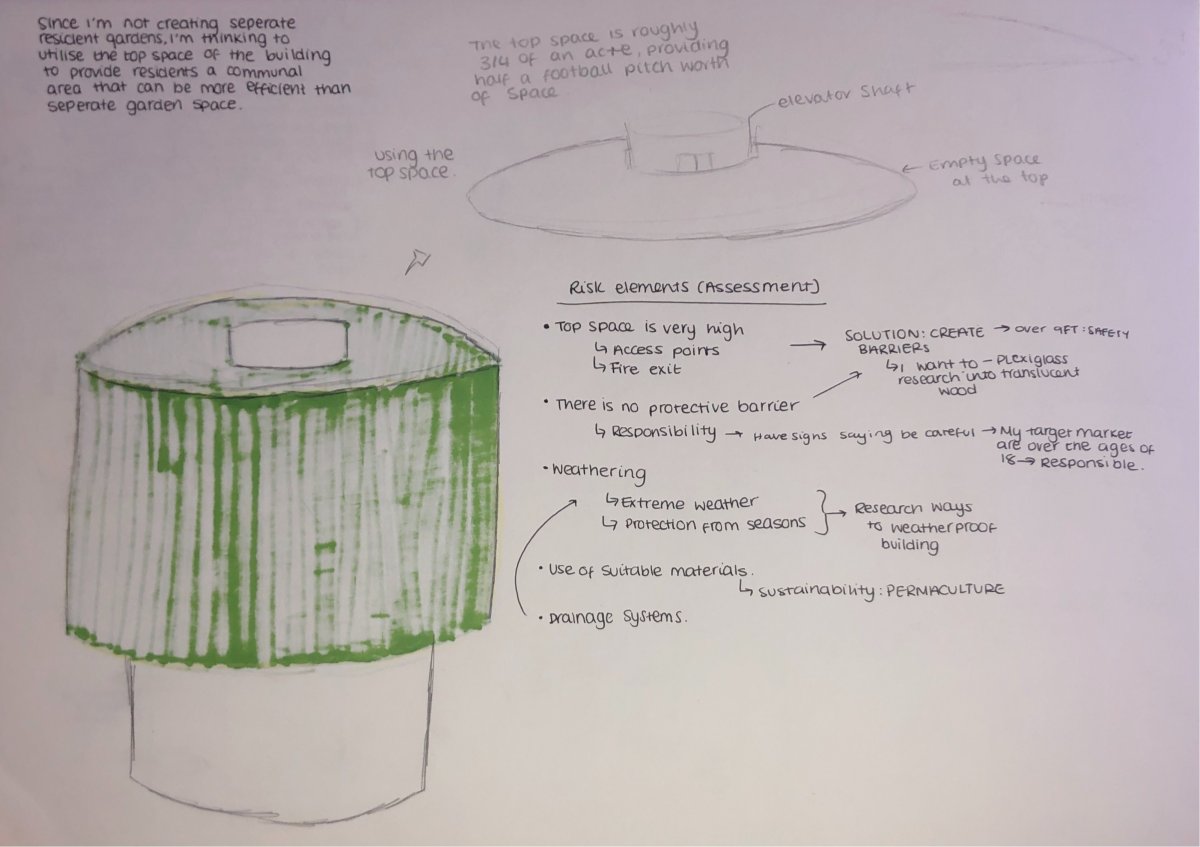 Since I'm not creating seperate
resident gardens, I'm thinking to
utilise the top space of the building
to provide residents a communal
area that can be more efficient than
seperate garden space.
The top space is roughly
3/4 of an acre, providing
half a football pitch worth
of space
elevator shaft
using the
top space.
Empty space
at the top
Risk elements (Assessment)
• Top space is very high
↳ Access points
↳ Fire exit
→ SOLUTION: CREATE → over 9FT: SAFETY
BARRIERS
↳ I want to - Plexiglass
research into translucent
wood
• There is no protective barrier
↳ Responsibility → Have signs saying be careful → My target market
are over the ages of
18 → Responsible.
• Weathering
↳ Extreme weather
↳ Protection from seasons
→ Research ways
to weatherproof
building
• Use of suitable materials.
↳ Sustainability: PERMACULTURE
• Drainage systems.